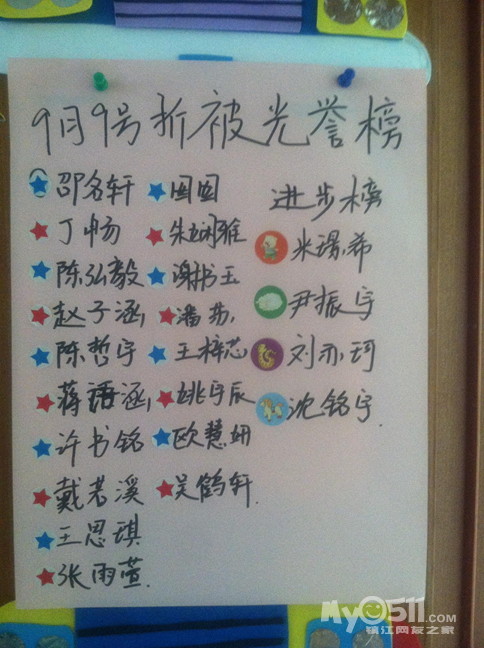 9月9号折被光誉榜
邵名轩
丁畅
陈弘毅
赵子涵
陈哲宇
蒋语涵
许书铭
戴若溪
王思琪
张雨萱.
囡囡
朱娴雅
谢书玉
潘苏.
王梓芯
姚宇辰
欧慧妍
吴鹤轩.
进步榜
米瑞希
尹振宇
刘亦珂
沈铭宇.
My0511.COM
镇江网友之家